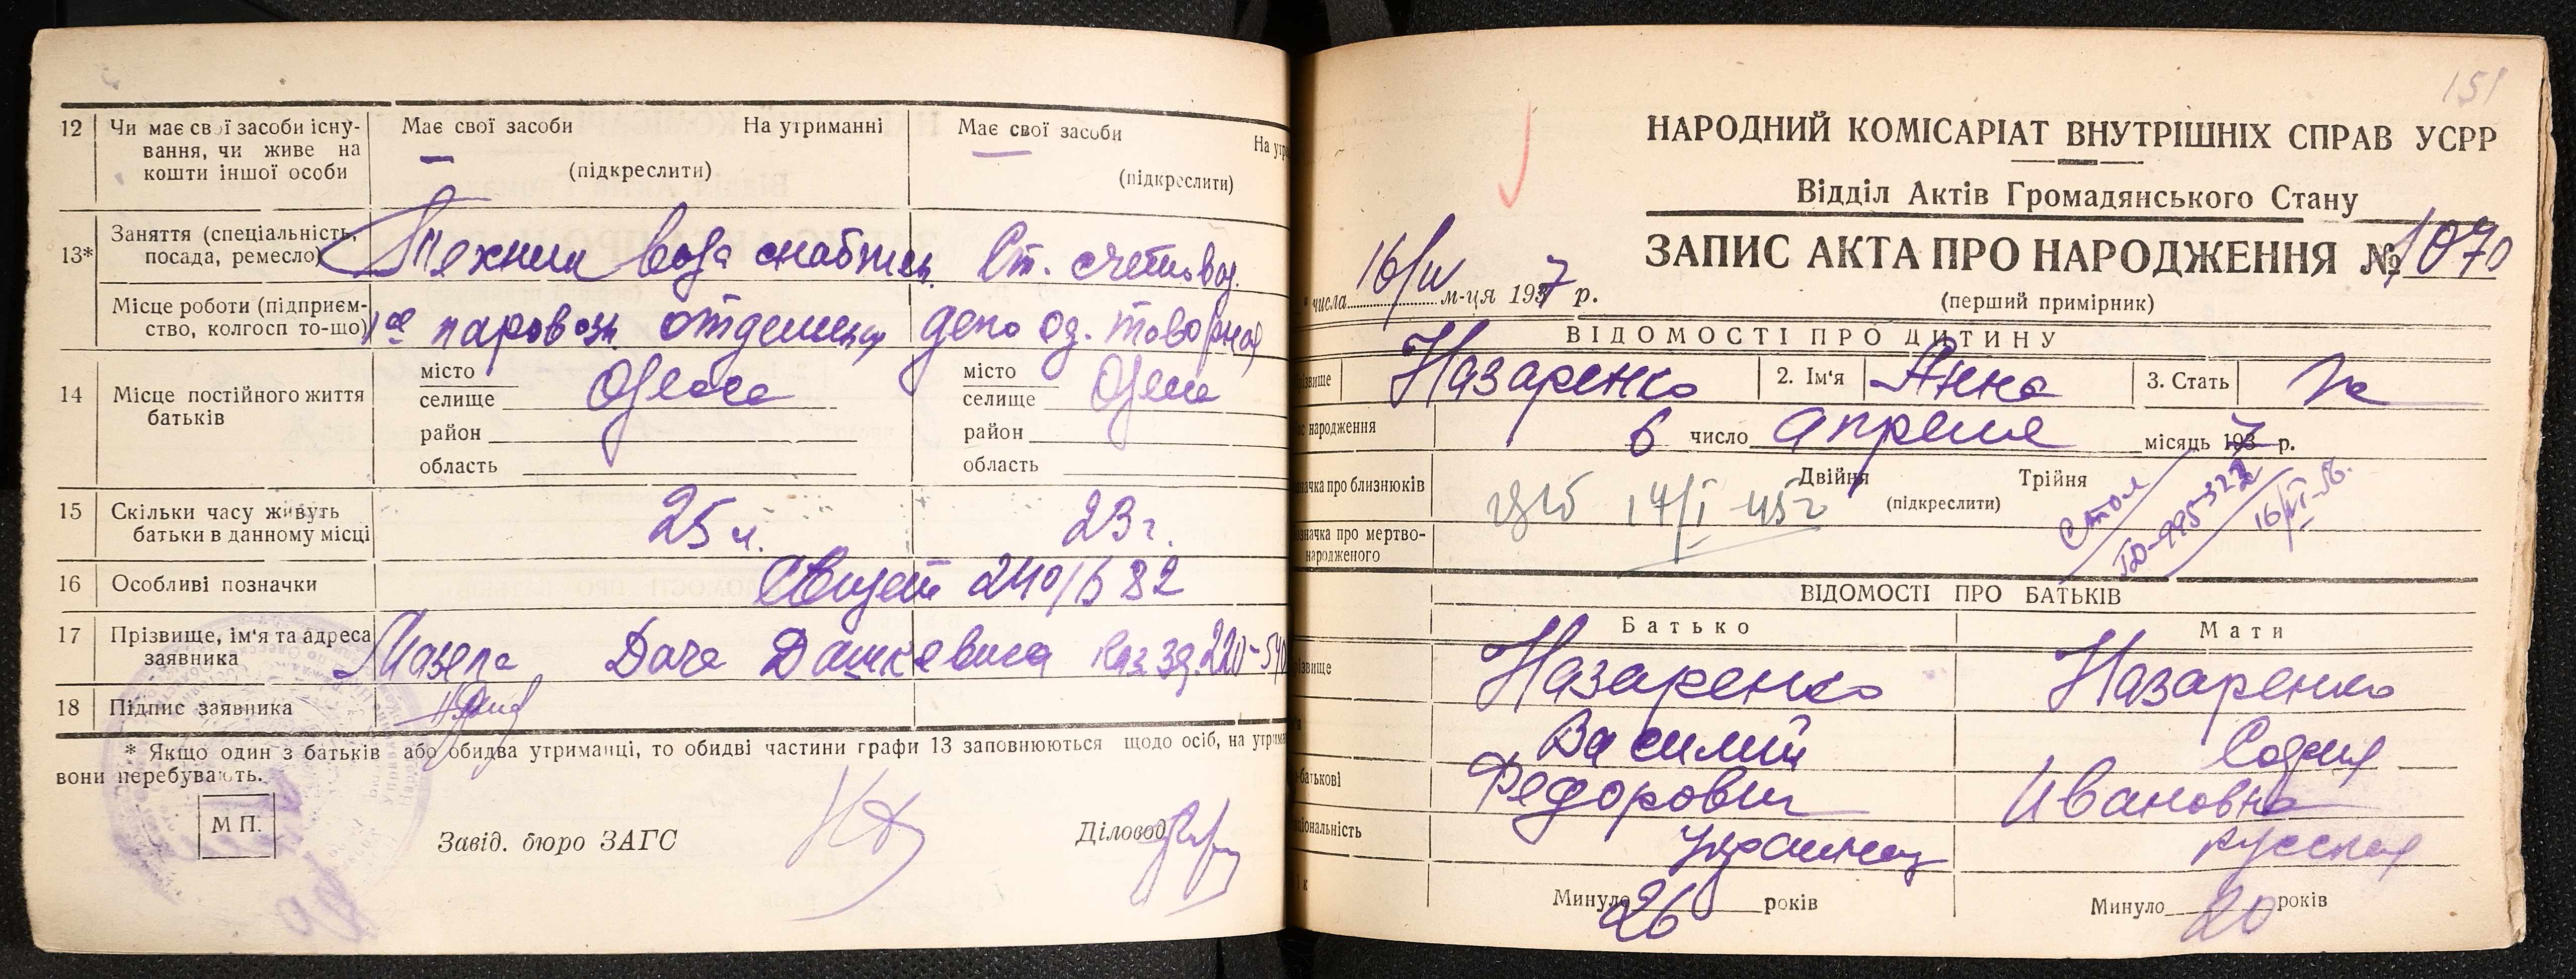 12 Чи має свої засоби існу-
вання, чи живе на
кошти іншої особи
Має свої засоби На утриманні
(підкреслити)
Має свої засоби На утри
(підкреслити)
13* Заняття (спеціальність,
посада, ремесло)
Техник водаснабжен. Ст. счетовод.
Місце роботи (підприєм-
ство, колгосп то-що)
1ое паровозн. отделения депо од. товорная
14 Місце постійного життя
батьків
місто
селище Одесса
район
область
місто
селище Одесса
район
область
15 Скільки часу живуть
батьки в данному місці
25 л. 23 г.
16 Особливі позначки
Свидет 240/682
17 Прізвище, ім'я та адреса
заявника
Дача Дашкевича каз зд. 220-
18 Підпис заявника
* Якщо один з батьків або обидва утриманці, то обидві частини графи 13 заповнюються щодо осіб, на утрим
вони перебувають.
М П.
Завід. бюро ЗАГС
Діловод
151
НАРОДНИЙ КОМІСАРІАТ ВНУТРІШНІХ СПРАВ УСРР
Відділ Актів Громадянського Стану
ЗАПИС АКТА ПРО НАРОДЖЕННЯ № 1070
числа 16/IV м-ця 1937 р.
(перший примірник)
ВІДОМОСТІ ПРО ДИТИНУ
ізвище Назаренко 2. Ім'я Анна 3. Стать ж
народження 6 число апреля місяць 1937 р.
значка про близнюків
Двійня Трійня
(підкреслити)
17/I 45г
16/VI-56.
значка про мертво-
народженого
ВІДОМОСТІ ПРО БАТЬКІВ
Батько Мати
ізвище Назаренко Назаренко
Василий София
батькові Федорович Ивановна
ціональність украинец русская
ік Минуло 26 років Минуло 20 років